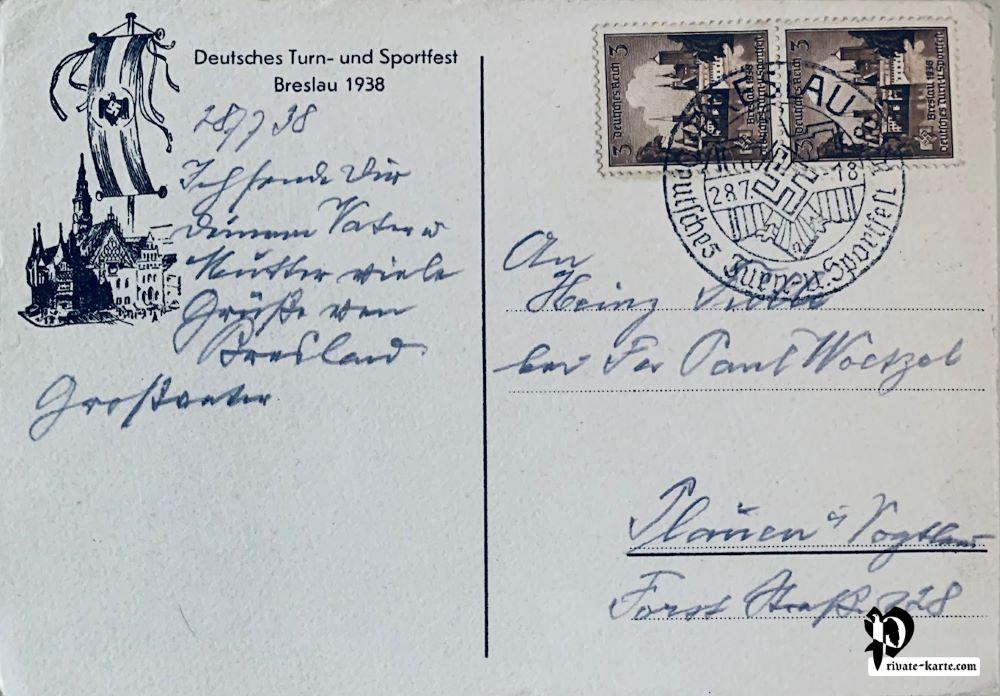 Deutsches Turn- und Sportfest
Breslau 1938
28/7 38
Ich sende Dir
deinem Vater u
Mutter viele
Grüße von
Breslau
Großvater
3 Deutsches Reich
Breslau 1938
Deutsches Turn u. Sportfest
3 Deutsches Reich
Breslau 1938
Deutsches Turn u. Sportfest
BRESLAU
28.7.
Deutsches Turn- u. Sportfest
An
Heinz
bei Fa Paul Woetzel
Plauen i/ Vogtland
Forst Straße 28
private-karte.com